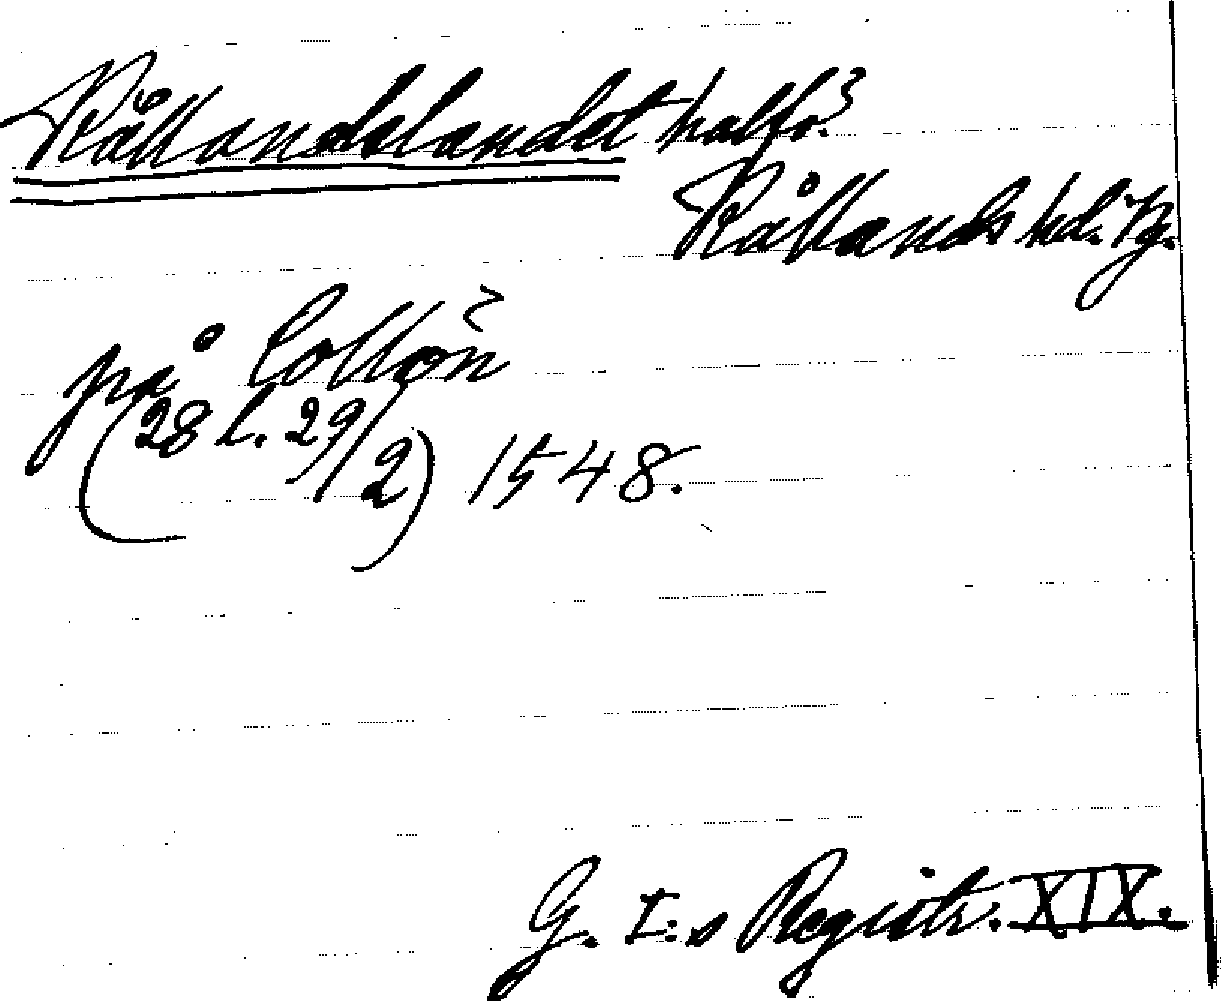 Kållandslandet halfö?
Kållands hd. Vg.
på Collön?
(28 l. 29/2) 1548.
G. I:s Registr. XIX.